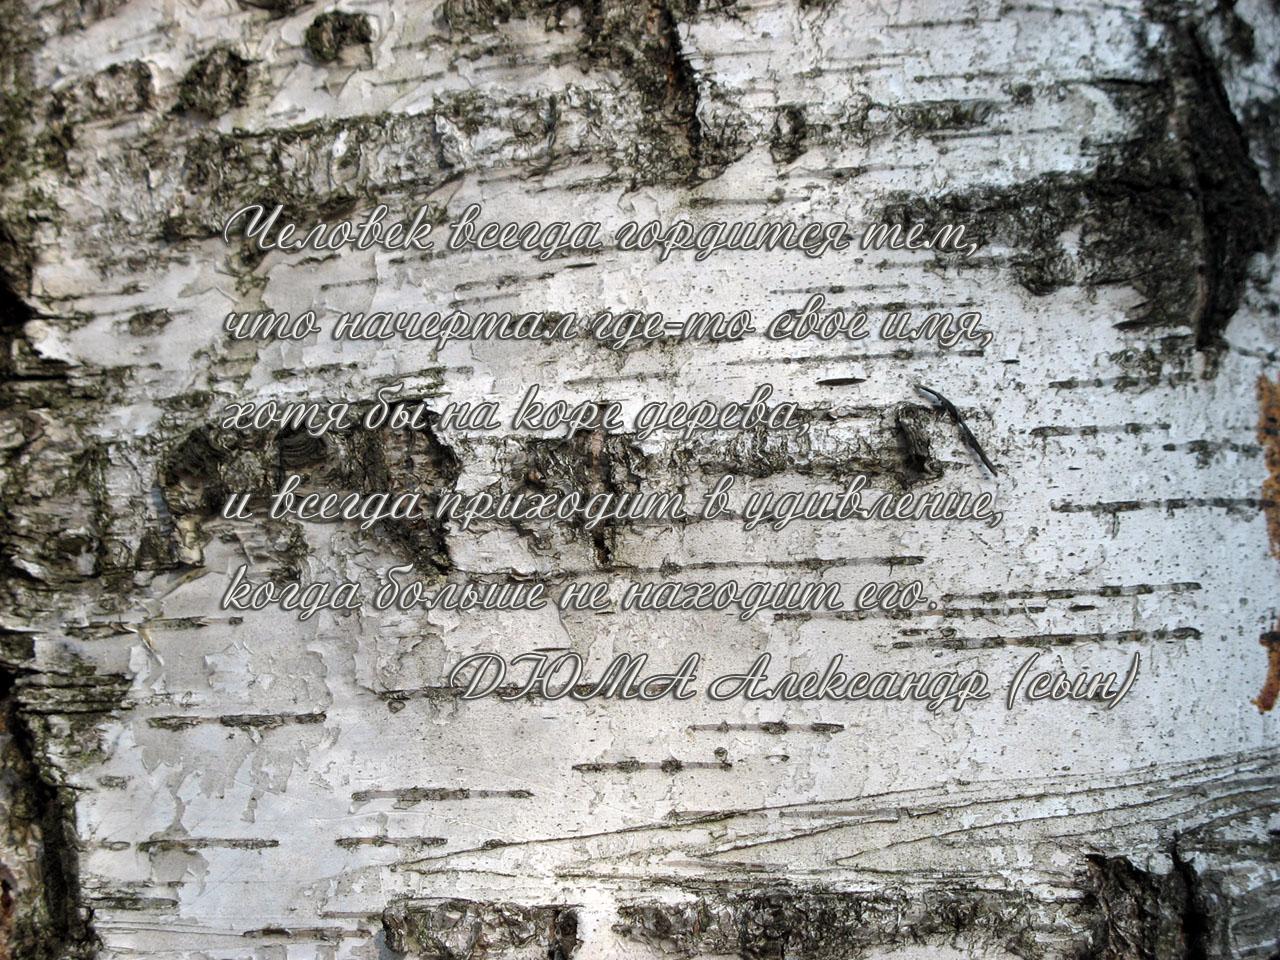 Человек всегда гордится тем,
что начертал где-то свое имя,
хотя бы на коре дерева,
и всегда приходит в удивление,
когда больше не находит его.
ДЮМА Александр (сын)